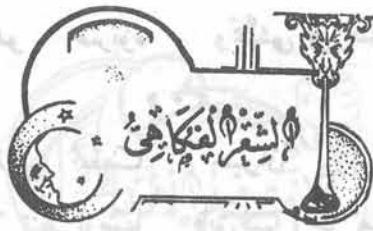 الشعر الفكاهى